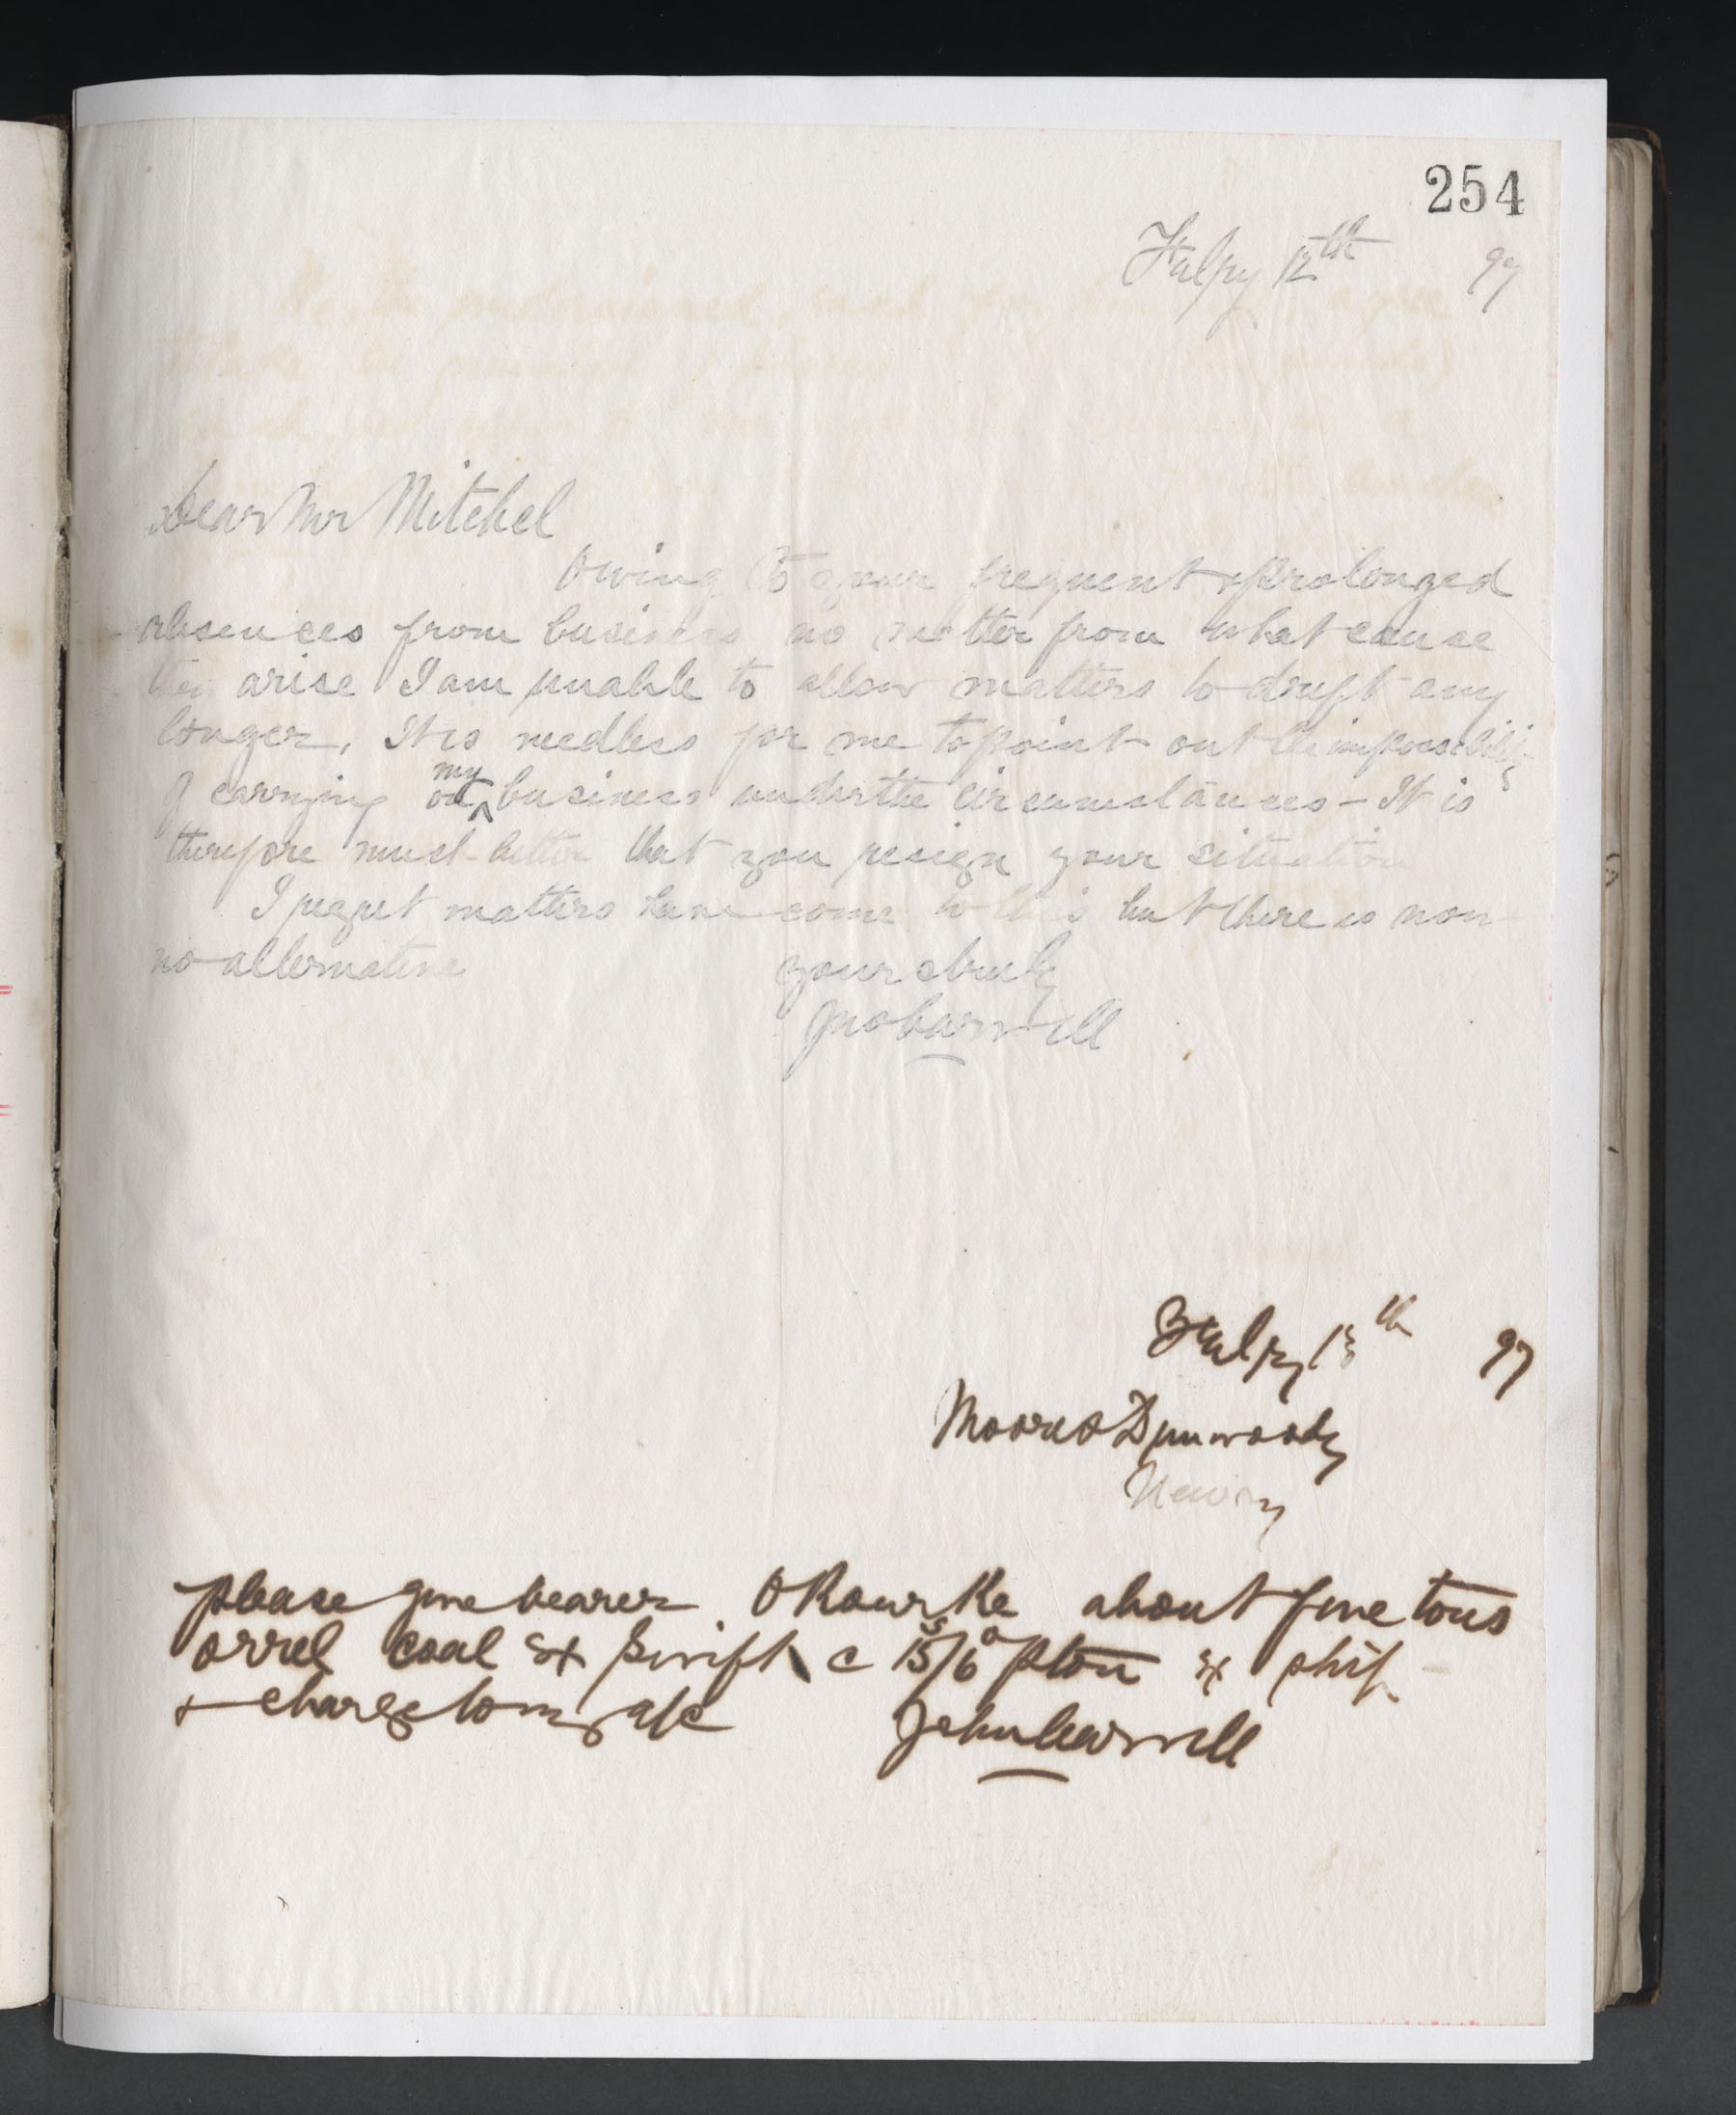 254
July 12th 97
Dear Mr Mitchel
Owing to your frequent & prolonged
absences from business no matter from what cause
they arise I am unable to allow matters to drift any
longer, It is needless for me to point out the impossibility
of carrying on my business under the circumstances - It is
therefore much better that you resign your situation
I regret matters have come to this but there is now
no alternative
yours truly
Jno Carvill
July 13th 97
Moore & Dunwoody
Newry
please give bearer O Rourke about five tons
orrel coal ex Swift @ 15s/6d p ton ex ship
& charge to my a/c
John Carvill